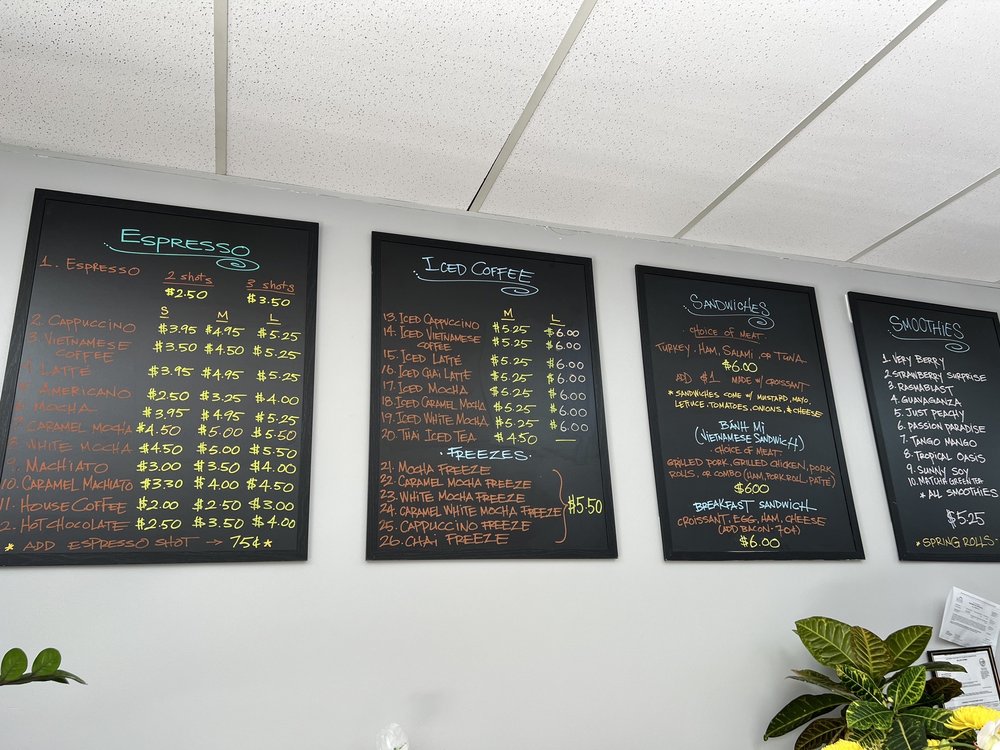 ESPRESSO
1. ESPRESSO 2 shots 3 shots
$2.50 $3.50
S M L
2. CAPPUCCINO $3.95 $4.95 $5.25
3. VIETNAMESE COFFEE $3.50 $4.50 $5.25
4. LATTÉ $3.95 $4.95 $5.25
5. AMERICANO $2.50 $3.25 $4.00
6. MOCHA $3.95 $4.95 $5.25
7. CARAMEL MOCHA $4.50 $5.00 $5.50
8. WHITE MOCHA $4.50 $5.00 $5.50
9. MACHIATO $3.00 $3.50 $4.00
10. CARAMEL MACHIATO $3.30 $4.00 $4.50
11. HOUSE COFFEE $2.00 $2.50 $3.00
12. HOT CHOCOLATE $2.50 $3.50 $4.00
* ADD ESPRESSO SHOT → 75¢ *
ICED COFFEE
M L
13. ICED CAPPUCCINO $5.25 $6.00
14. ICED VIETNAMESE COFFEE $5.25 $6.00
15. ICED LATTÉ $5.25 $6.00
16. ICED CHAI LATTE $5.25 $6.00
17. ICED MOCHA $5.25 $6.00
18. ICED CARAMEL MOCHA $5.25 $6.00
19. ICED WHITE MOCHA $5.25 $6.00
20. THAI ICED TEA $4.50 —
· FREEZES ·
21. MOCHA FREEZE
22. CARAMEL MOCHA FREEZE
23. WHITE MOCHA FREEZE
24. CARAMEL WHITE MOCHA FREEZE $5.50
25. CAPPUCCINO FREEZE
26. CHAI FREEZE
SANDWICHES
· CHOICE OF MEAT ·
TURKEY, HAM, SALAMI, OR TUNA
$6.00
ADD $1 MADE W/ CROISSANT
* SANDWICHES COME W/ MUSTARD, MAYO,
LETTUCE, TOMATOES, ONIONS, & CHEESE *
BÁNH MÌ
(VIETNAMESE SANDWICH)
· CHOICE OF MEAT ·
GRILLED PORK, GRILLED CHICKEN, PORK
ROLLS, OR COMBO (HAM, PORK ROLL, PATTÉ)
$6.00
BREAKFAST SANDWICH
CROISSANT, EGG, HAM, CHEESE
(ADD BACON - 70¢)
$6.00
SMOOTHIES
1. VERY BERRY
2. STRAWBERRY SURPRISE
3. RASMABLAST
4. GUAVAGANZA
5. JUST PEACHY
6. PASSION PARADISE
7. TANGO MANGO
8. TROPICAL OASIS
9. SUNNY SOY
10. MATCHA GREEN TEA
* ALL SMOOTHIES
$5.25
* SPRING ROLLS -